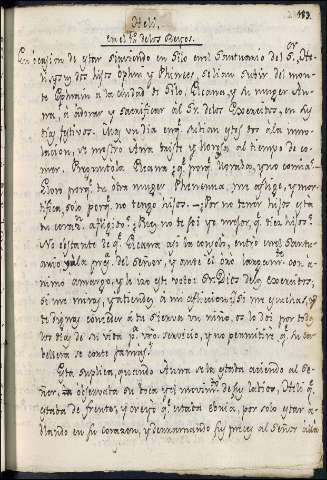 183.
Heli.
en el 1º de los Reyes.
En ocasion de estar sirviendo en Silo en el Santuario del Sr. He-
li, y sus dos hijos Ophni y Phinees, solian subir del mon-
te Ephrain a la ciudad de Silo, Elcana, y su muger An-
na, á adorar y sacrificar al Sr. de los Exercitos, en sus
dias festivos. Mas un dia en q.e subian estos dos a la inmo-
lacion, se mostró Anna triste y llorosa al tiempo de co-
mer. Preguntola Elcana: q.e por q.e lloraba, y no comia?
Lloro porq.e tu otra muger Phenenna, me aflige, y mor-
tifica, solo porq.e no tengo hijos. ¿Por no tener hijos esta
tu corazon afligido? ¿Pues no te soi yo mejor, q.e diez hijos?
No obstante de q.e Elcana asi la consoló, entró en el Santu-
ario a la pres.a del Señor, y ante él oró largam.te con a-
nimo amargo, y le izo este voto: Sr. Dios de los exercitos,
si me miras, y atiendes á mi afliccion, si me escuchas, y
te dignas conceder a tu sierva un niño, os lo doi por todos
los dias de su vida p.a vro. servicio, y no permitiré q.e su ca-
bellera se corte jamas.
Esta suplica, quando Anna se la estaba aciendo al Se-
ñor, observaba su boca y el movim.to de sus labios, Heli q.e
estaba de frente, y creyó q.e estaba ebria, por solo estar a-
blando en su corazon, y derramando sus preces al Señor a la